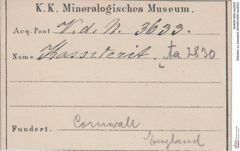 K. K. Mineralogisches Museum.
Acq. Post V. d. N. 3633.
Name Kassiterit. Aa 2830
Fundort. Cornwall
England